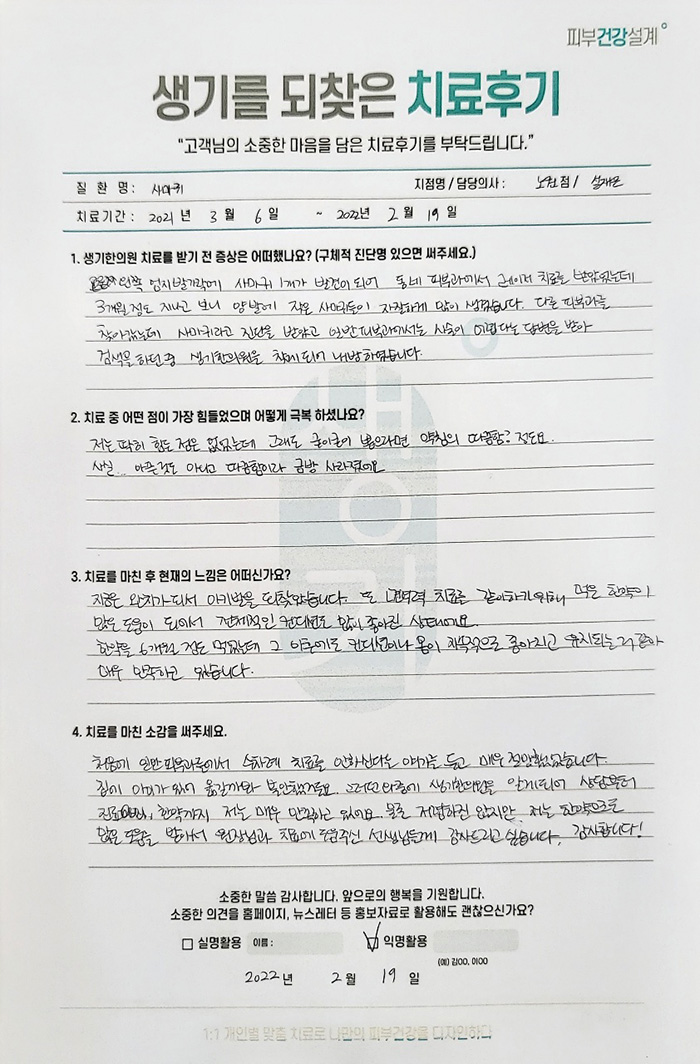 피부건강설계
생기를 되찾은 치료후기
"고객님의 소중한 마음을 담은 치료후기를 부탁드립니다."
질 환 명 : 사마귀 지점명 / 담당의사 : 노원점 / 설재은
치료기간 : 2021 년 3 월 6 일 ~ 2022년 2 월 19 일
1. 생기한의원 치료를 받기 전 증상은 어떠했나요? (구체적 진단명 있으면 써주세요.)
왼쪽 엄지발가락에 사마귀 1개가 발견이 되어 동네 피부과에서 레이저 치료를 받았었는데
3개월 정도 지나고 보니 양발에 작은 사마귀들이 자잘하게 많이 생겼습니다. 다른 피부과를
찾아갔는데 사마귀라고 진단을 받았고 일반피부과에서는 시술이 어렵다는 답변을 받아
검색을 하던 중 생기한의원을 찾게 되어 내방하였습니다.
2. 치료 중 어떤 점이 가장 힘들었으며 어떻게 극복 하셨나요?
저는 딱히 힘든 점은 없었는데 그래도 굳이굳이 뽑으라면 약침의 따끔함? 정도요.
사실... 아픈것도 아니고 따끔함이라 금방 사라졌어요
3. 치료를 마친 후 현재의 느낌은 어떠신가요?
지금은 완치가 되서 아기발을 되찾았습니다. 또 면역력 치료를 같이하기위해 먹은 한약이
많은 도움이 되어서 전체적인 컨디션도 많이 좋아진 상태에요.
한약을 6개월 정도 먹었는데 그 이후에도 컨디션이나 몸이 지속적으로 좋아지고 유지되는거 같아
매우 만족하고 있습니다.
4. 치료를 마친 소감을 써주세요.
처음에 일반피부과들에서 줄줄이 치료를 안하신다는 얘기를 듣고 매우 절망했었습니다.
집에 아이가 있어 옮길까봐 불안했거든요. 그러던 와중에 생기한의원을 알게되어 상담부터
진료, 한약까지 저는 매우 만족하고 있어요. 물론 저렴하진 않지만 저는 한약으로도
많은 도움을 받아서 원장님과 치료에 도움주신 선생님들께 감사드리고 싶습니다. 감사합니다!
소중한 말씀 감사합니다. 앞으로의 행복을 기원합니다.
소중한 의견을 홈페이지, 뉴스레터 등 홍보자료로 활용해도 괜찮으신가요?
실명활용 이름 : 익명활용
(예) 김OO, 이OO
2022 년 2 월 19 일
1:1 개인별 맞춤 치료로 나만의 피부건강을 디자인하다
생기